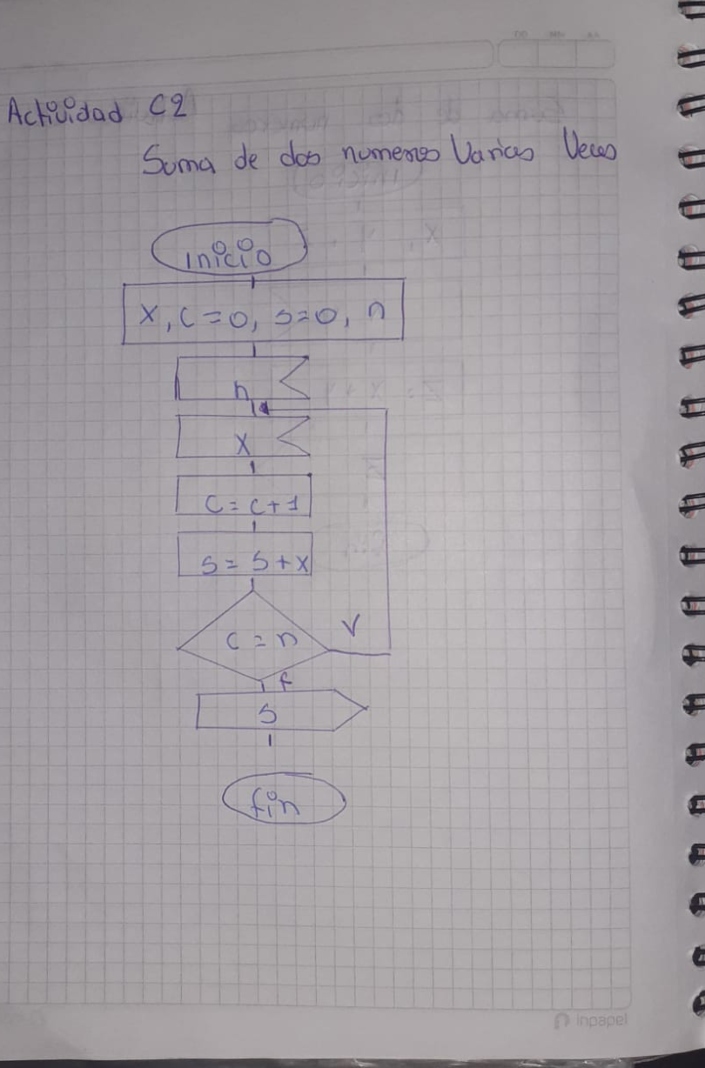 Actividad C2
Suma de dos numeros Varias Veces
inicio
X, C = 0, S=0, n
n
X
C = C+1
S = S+X
C = n
V
f
S
fin
inpapel